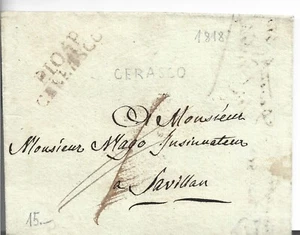 1818
P104P
CERASCO
A Monsieur
Monsieur Mago Insinuateur
a Savillan
15.—